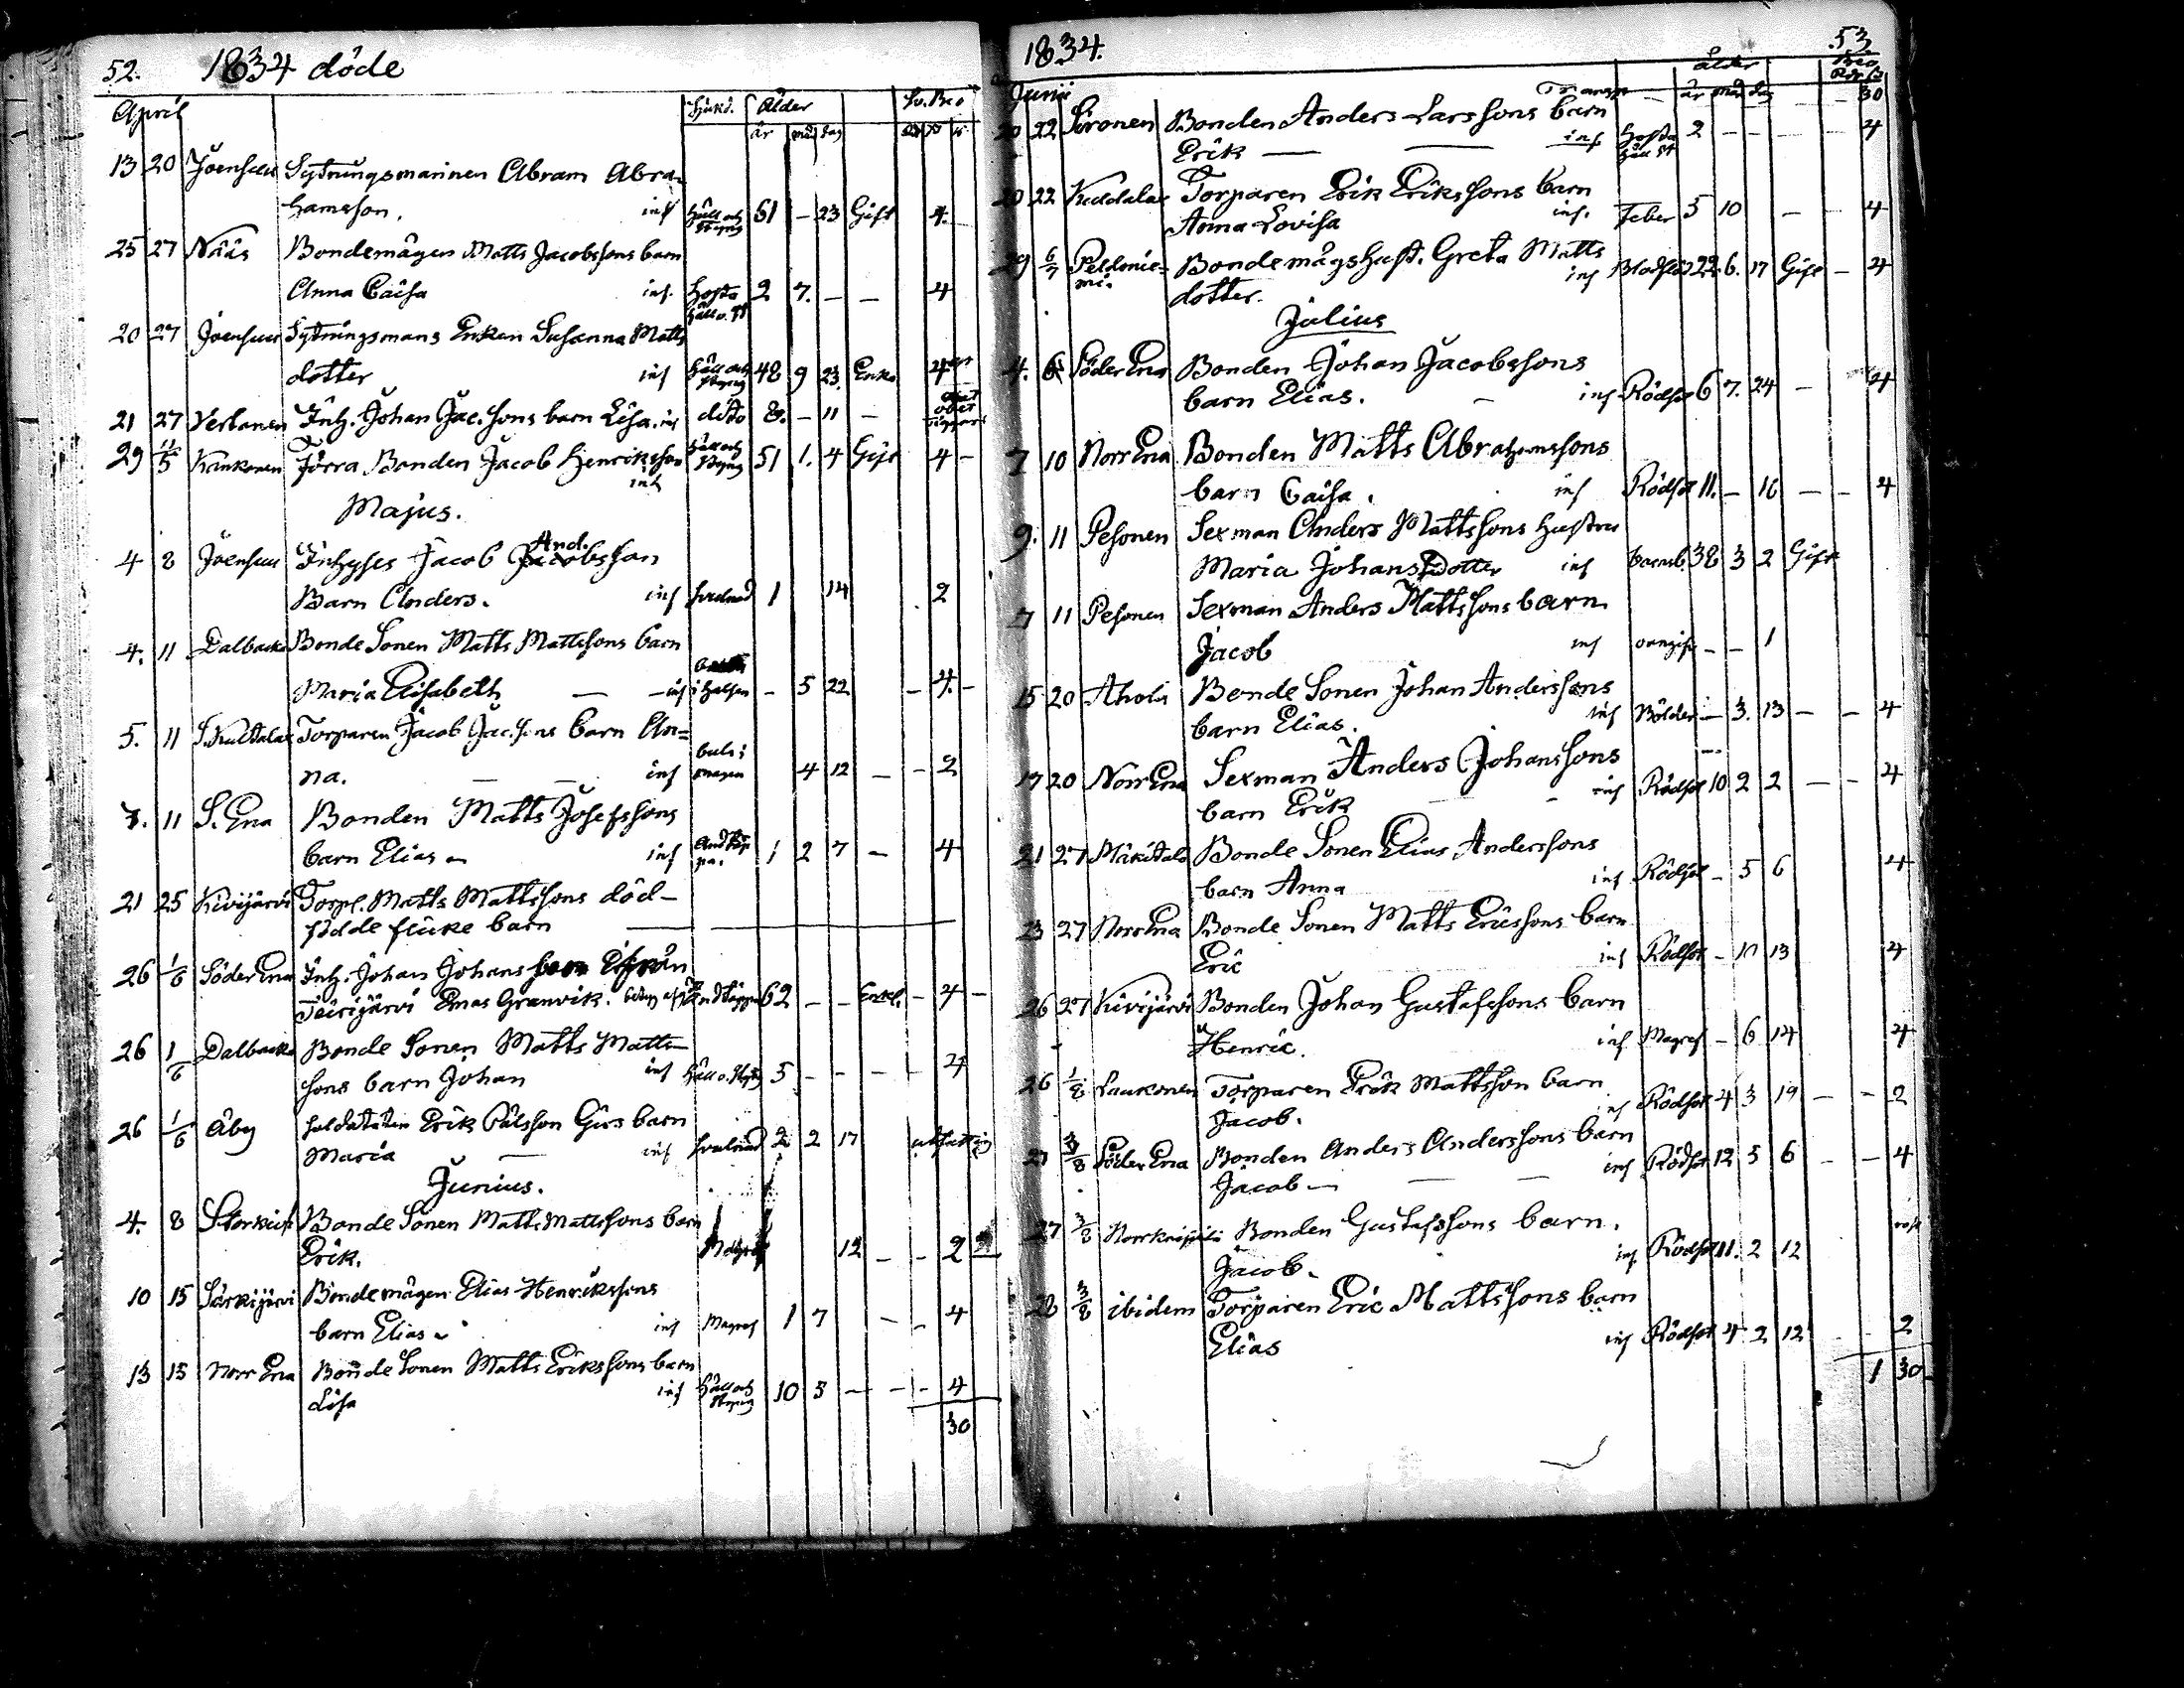 52. 1834 döde
April Sjukd. Ålder Sv. Bco
år mån dag
13 20 Joensuu Sytningsmannen Abram Abra-
hamsson. inf Håll och Styng 61 - 23 Gift 4
25 27 Näås Bondemågen Matts Jacobssons barn
Anna Caisa inf. Hosta Håll o. St 2 7. - - 4
20 27 Joensuu Sytningsmans Enkan Susanna Matts
dotter inf Håll och Styng 48 9 23. Enka 4
21 27 Verlanen Inh. Johan Jac.sons barn Lisa. inf dito 8. - 11 -
29 11/5 Känkonen Förra Bonden Jacob Henriksson Håll och Styng 51 1. 4 Gift 4 -
inf
Majus.
And.
4 8 Joensuu Inhyses Jacob Jacobsson
Barn Anders. inf 1 14 2
4. 11 Dalbacka Bonde Sonen Matts Mattssons barn
Maria Elisabeth - - inf i halsen - 5 22 - 4. -
5. 11 Torparen Jacob Jac.sons barn An=
na. - - inf magen 4 12 - - 2
7. 11 S. Ena Bonden Matts Josefssons
barn Elias inf Andtäp pa. 1 2 7 - 4
21 25 Kivijärvi Torp. Matts Mattssons död-
födde flicke barn
26 1/6 Söder Ena Inh. Johan Johans ifrån
Teirijärvi Enas Granvik. Andtäppa 62 - - Enkl. - 4 -
26 1/6 Dalbacka Bonde Sonen Matts Matts-
sons barn Johan inf Håll o. Styng 5 - - - - 4
26 1/6 Åby Soldaten Erik Pålsson Girs barn
Maria - inf 2 2 17 utfattig
Junius.
4. 8 Storkiis Bonde Sonen Matts Mattssons barn
Erik. Magref 12 - - 2
10 15 Särkijärvi Bondemågen Elias Henrikssons
barn Elias inf Magref 1 7 - - 4
13 15 Norr Ena Bonde Sonen Matts Erikssons barn
Lisa inf Håll och Styng 10 5 - - - 4
30
1834. 53.
Junii Transp. ålder år mån dag Bco 30
20 22 Söronen Bonden Anders Larssons barn
Erik - - inf Hosta Håll St 2 - - - - 4
20 22 Kuddalax Torparen Erik Erikssons barn
Anna Lovisa inf. Feber 5 10 - - 4
29 6/7 Peldonie-mi. Bondemågs hust. Greta Matts
dotter. inf 22 6. 17 Gift - 4
Julius
4. 6 Söder Ena Bonden Johan Jacobssons
barn Elias. - inf Rödsot 6 7. 24 - 4
7 10 Norr Ena Bonden Matts Abrahamssons
barn Caisa. inf Rödsot 11. - 16 - - 4
9. 11 Pesonen Sexman Anders Mattssons hustru
Maria Johans Dotter inf barnsb. 38 3 2 Gift
7 11 Pesonen Sexman Anders Mattssons barn
Jacob inf - - 1
15 20 Ahola Bonde Sonen Johan Anderssons
barn Elias. inf Bölder - 3. 13 - - 4
17 20 Norr Ena Sexman Anders Johanssons
barn Erik - - inf Rödsot 10 2 2 - - 4
21 27 Mäkitalo Bonde Sonen Elias Anderssons
barn Anna inf Rödsot - 5 6 4
23 27 Norr Ena Bonde Sonen Matts Ericssons barn
Eric inf Rödsot - 10 13 4
26 27 Kivijärvi Bonden Johan Gustafssons barn
Henric. inf Magref - 6 14 4
26 1/8 Laukonen Torparen Erik Mattsson barn
Jacob. inf Rödsot 4 3 19 - - 2
27 3/8 Söder Ena Bonden Anders Anderssons barn
Jacob - - - inf Rödsot 12 5 6 - - 4
27 3/8 Bonden Gustafssons barn.
Jacob. inf Rödsot 11. 2 12
28 3/8 ibidem Torparen Eric Mattssons barn
Elias inf Rödsot 4 2 12 - - 2
1 30